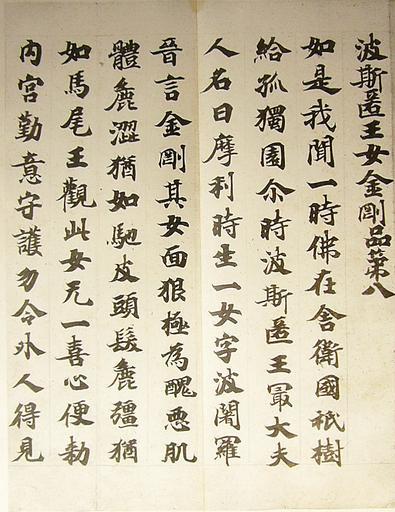 波斯匿王女金剛品第八
如是我聞一時佛在舍衛國祇樹
給孤獨園尒時波斯匿王冣大夫
人名曰摩利時生一女字波闍羅
晉言金剛其女面狠極為醜惡肌
體麁澀猶如駞皮頭髮麁彊猶
如馬尾王觀此女无一喜心便勑
內宮勤意守護勿令外人得見